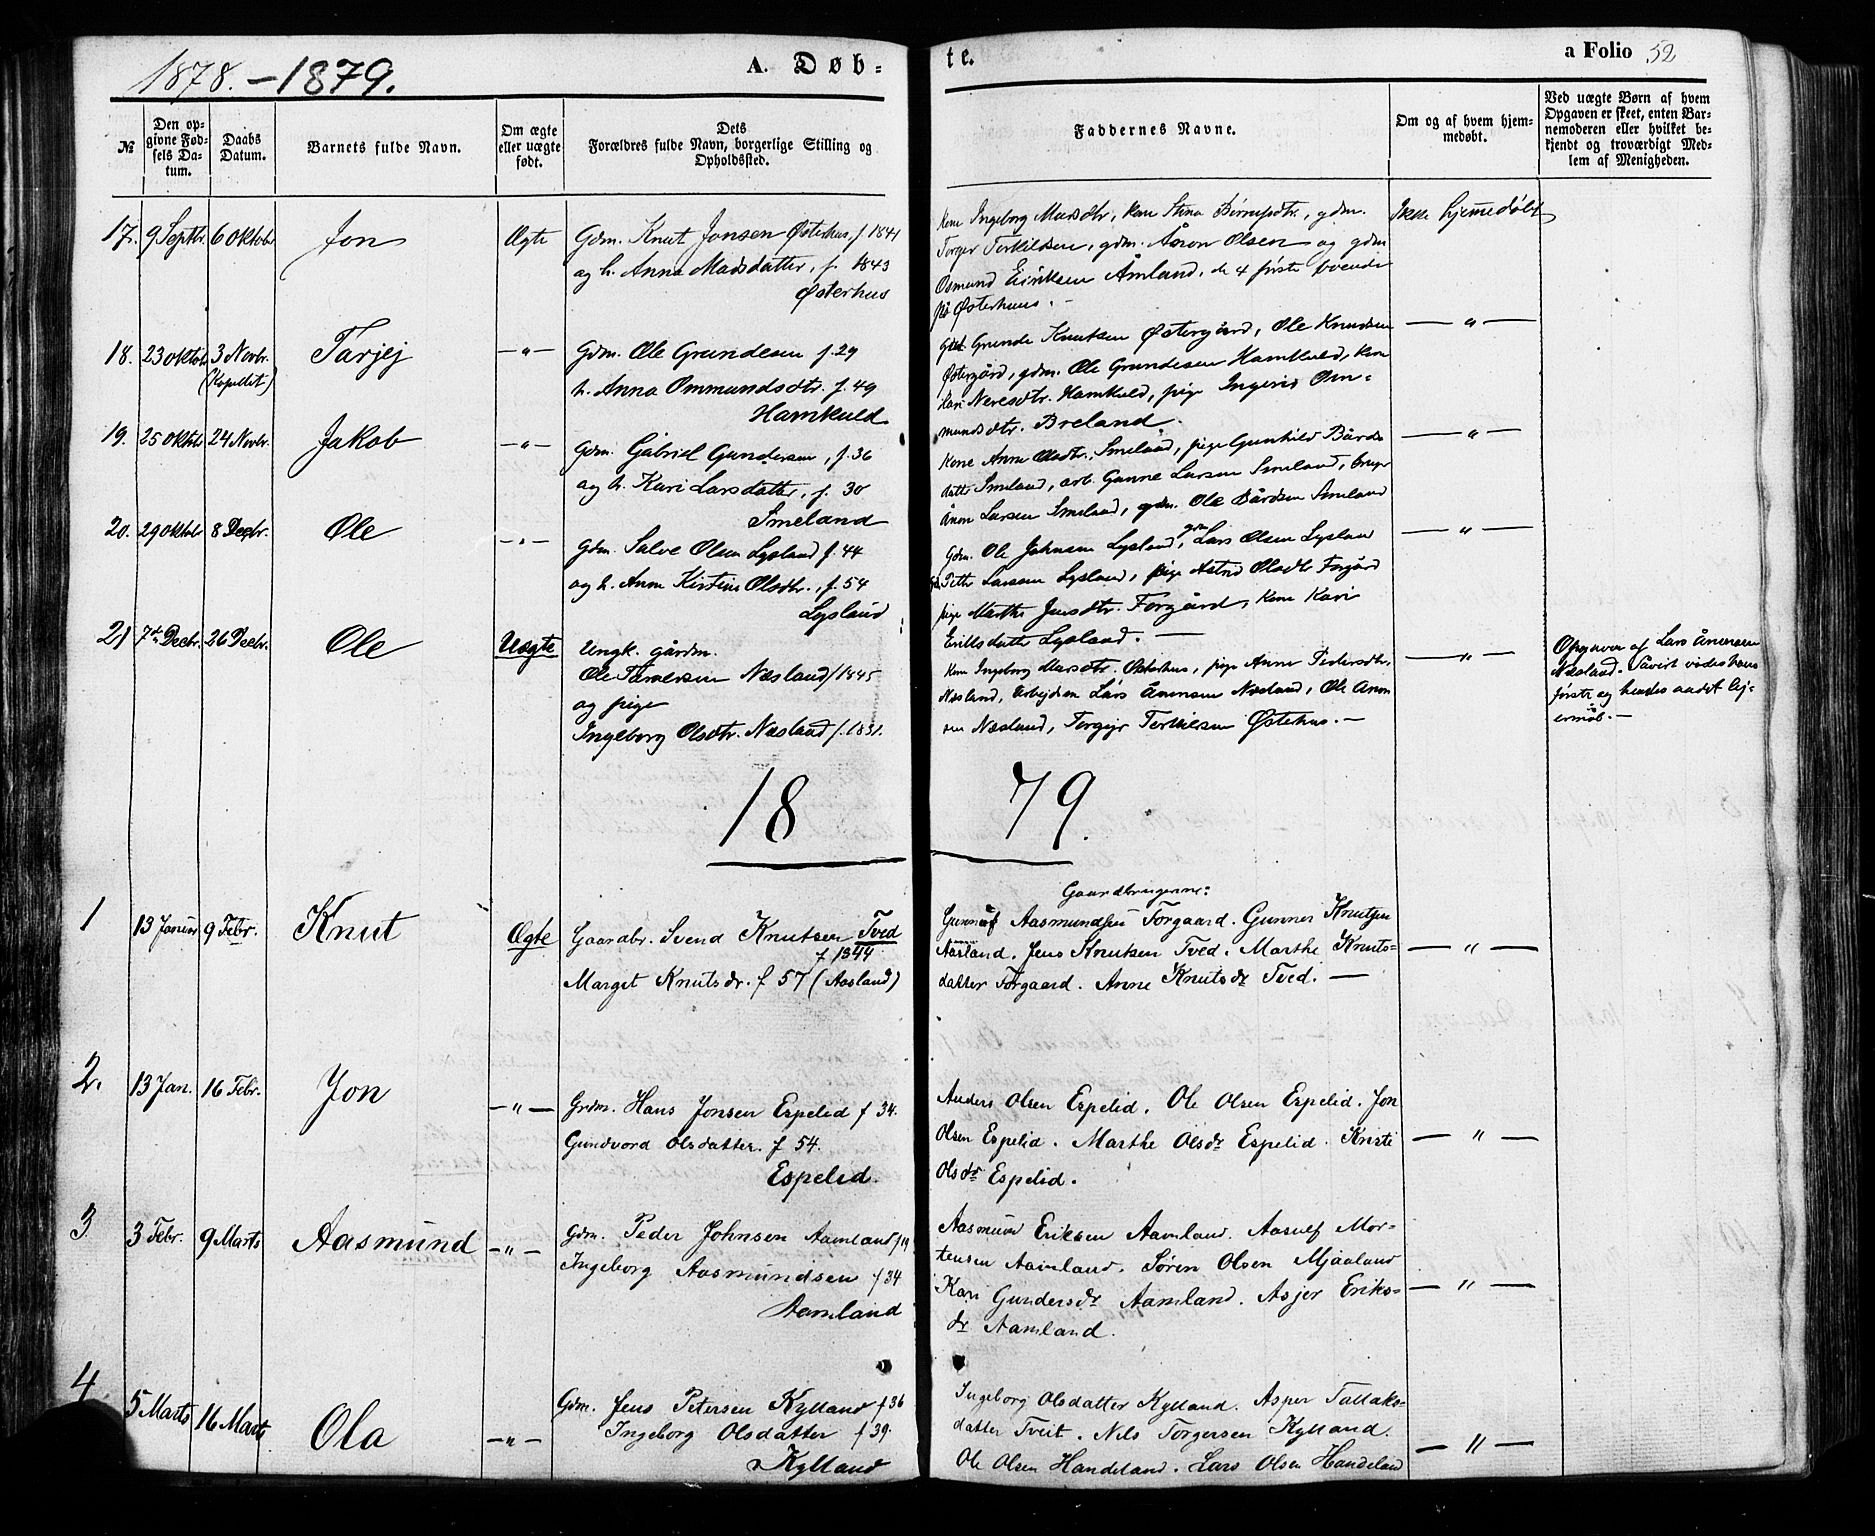 1878.–1879.
A. Døb-
te.
a Folio 52
№
Den op-
givne Fød-
sels Da-
tum.
Daabs
Datum.
Barnets fulde Navn.
Om ægte
eller uægte
født.
Dets
Forældres fulde Navn, borgerlige Stilling og
Opholdssted.
Faddernes Navne.
Om og af hvem hjem-
medøbt.
Ved uægte Børn af hvem
Opgaven er skeet, enten Bar-
nemoderen eller hvilket be-
kjendt og troværdigt Med-
lem af Menigheden.
17. 9 Septbr. 6 Oktobr Jon Ægte
Gdm. Knut Jonsen Østerhus, f. 1841
og h. Anna Madsdatter, f. 1843
Østerhus
Kone Ingeborg Marsdtr, Kone Stina gdm.
Torger Terkildsen, gdm. Ånon Olsen og gdm
Osmund Eriksen Åmland, de 4 første boende
på Østerhuus. –
Ikke hjemmedøbt
18. 23 Oktobr 3 Novbr. (Kapellet) Tarjej –"–
Gdm. Ole Grundesen f. 29
h. Anna Ommundsdtr. f. 49
Hamkuld
Grunde Knutsen Østergård, Ole Knudsen
Østergård, gdm. Ole Grundesen Hamkuld, Kone
Kari Neresdtr. Hamkuld, pige Ingerid Om-
mundsdtr. Breland.
–"–
19. 25 Oktobr 24 Novbr. Jakob –"–
Gdm. Gabriel Gundersen, f. 36
og h. Kari Larsdatter, f. 30
Smeland
Kone Anne Olsdtr. Smeland, pige Gunhild Bårds
datter Smeland, arb. Gunne Larsen Smeland,
Ånon Larsen Smeland, gdm. Ole Bårdsen Smeland
–"–
20. 29 Oktobr 8 Decbr. Ole –"–
Gdm. Salve Olsen Lysland f. 44
og h. Anne Kirstine Olsdtr., f. 54
Lysland
Gdm. Ole Johnsen Lysland, gdm Lars Olsen Lysland
Petter Larsen Lysland, pige Astrid Olsdtr Forgård
pige Marthe Jensdtr. Forgård, Kone Kari
Eriksdatter Lysland. –
–"–
21 7de Decbr. 26 Decbr. Ole Uægte
Ungk. gårdm.
Ole Taralsen Næsland f 1845
og pige
Ingeborg Olsdtr. Næsland f. 1831.
Kone Ingeborg Marsdtr. Østerhus, pige Anne Pedersdtr.
Næsland, Arbejdsm Lars Ånonsen Næsland, Ole Anon
sen Næsland, Torgeir Terkilsen Østehus. –
–"–
Opgaven af Lars Ånonsen
Næsland. Såvirt vides hans
første og hendes andet lej-
ermål. –
18 79.
Gaardbrugerne:
1 13 Januar 9 Febr. Knut Ægte
Gaardbr. Svend Knutsen Tved
f 1844
Marget Knutsdr. f 57 (Aasland)
Aasmundsen Forgaard. Gunner Knutsen
Aasland. Jens Knutsen Tved. Marthe Knuts-
datter Forgaard. Anne Knutsdr Tved. –
–"–
2. 13 Jan. 16 Febr. Jon –"–
Grdm. Hans Jonsen Espelid f 34.
Gundvord Olsdatter. f 54.
Espelid.
Anders Olsen Espelid. Ole Olsen Espelid. Jon
Olsen Espelid. Marthe Olsdr Espelid. Kristi
Olsdr Espelid.
–"–
3 3 Febr. 9 Marts Aasmund –"–
Gdm. Peder Johnsen Aamland f 19
Ingeborg Aasmundsen f 34
Aamland
Aasmund Eriksen Aamland. Aasulf Mor-
tensen Aamland. Søren Olsen Mjaaland
Kari Gundersdr Aamland. Asjer Eriks-
dr Aamland.
–"–
4 5 Marts 16 Marts Ola –"–
Gdm. Jens Petersen Kylland f 36
Ingeborg Olsdatter f 39.
Kylland
Ingeborg Olsdatter Kylland. Asper Tallaks-
datter Tveit. Nils Torgersen Kylland.
Ole Olsen Handeland. Lars Olsen Handeland
–"–